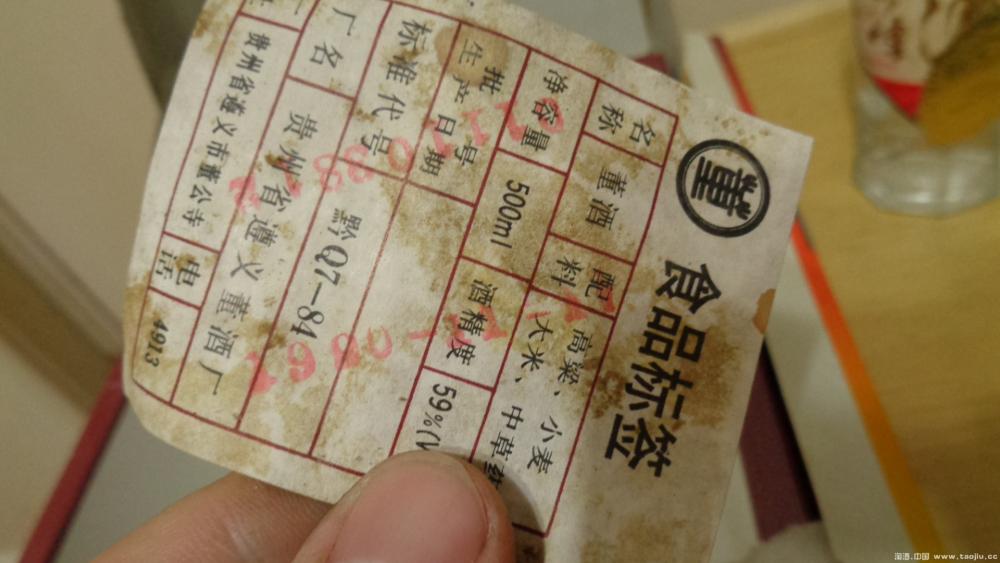 董
食品标签
名称 董酒 配料 高粱、小麦
大米、中草
净容量 500ml 酒精度 59%(V
批号
生产日期
标准代号 黔Q7—84
厂名 贵州省遵义董酒厂
贵州省遵义市董公寺 电话 4913
淘酒.中国 www.taojiu.cc